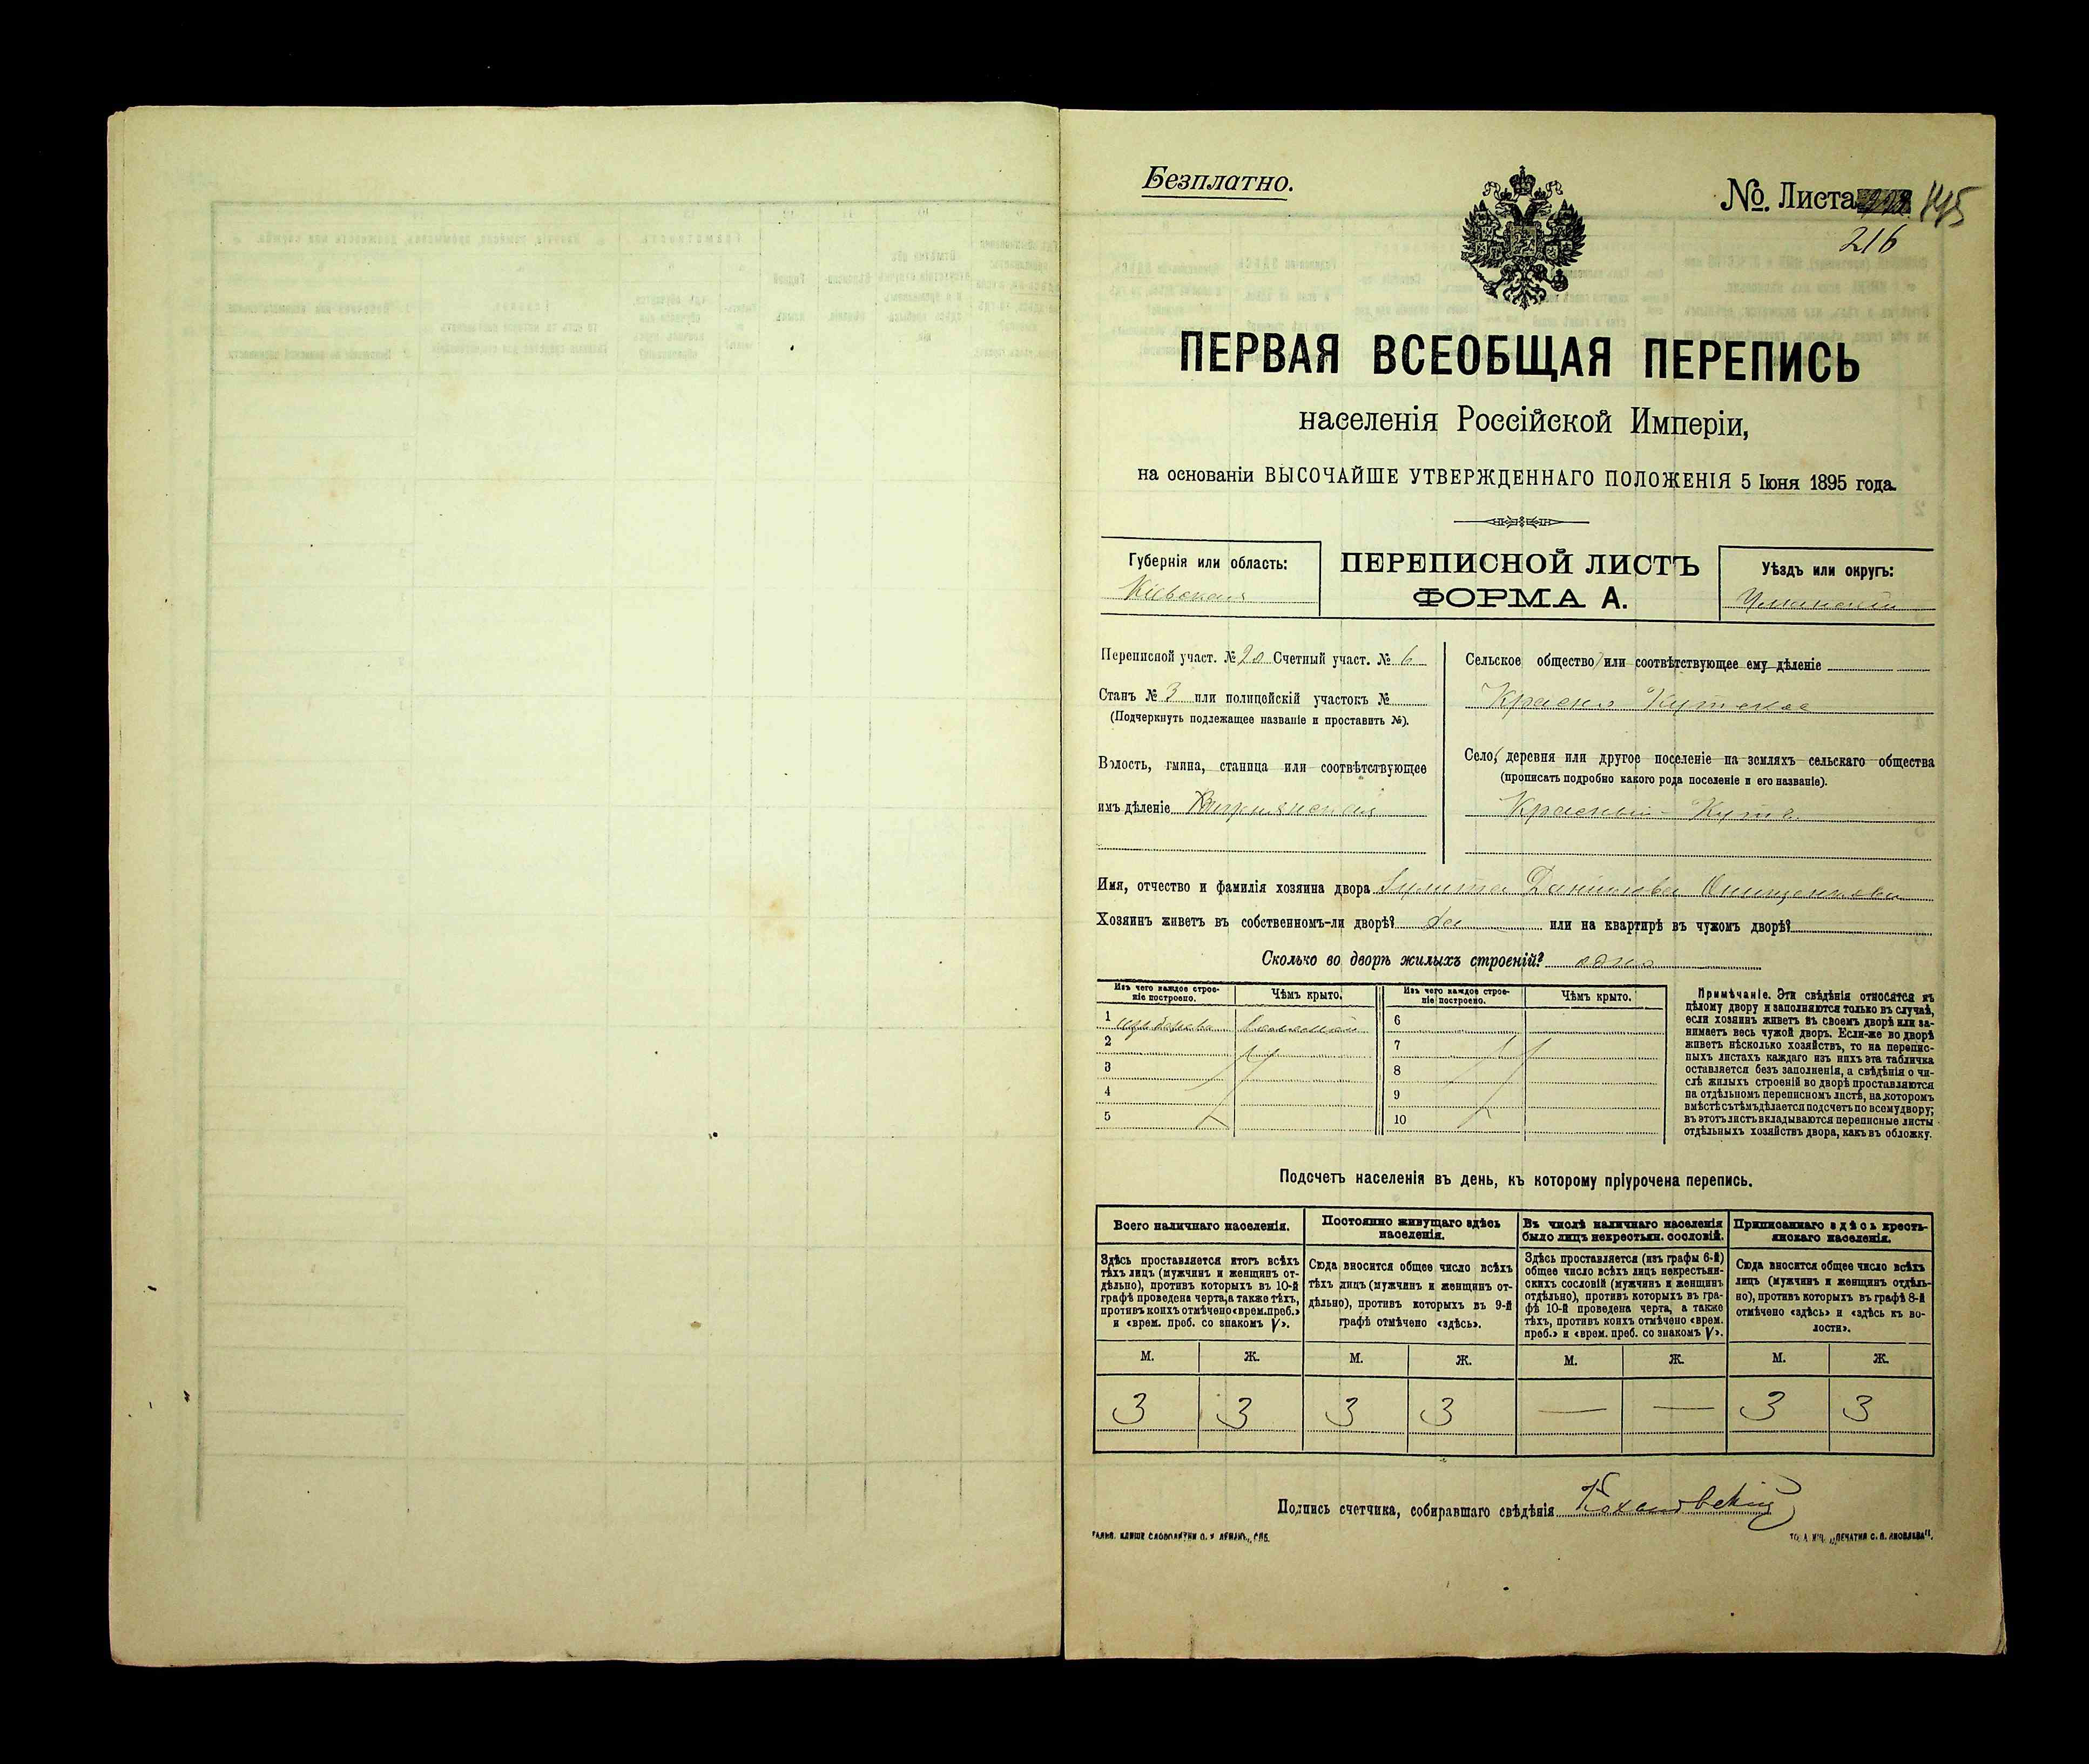 Безплатно.
№ Листа 145
216
ПЕРВАЯ ВСЕОБЩАЯ ПЕРЕПИСЬ
населенія Россійской Имперіи,
на основаніи ВЫСОЧАЙШЕ УТВЕРЖДЕННАГО ПОЛОЖЕНІЯ 5 Іюня 1895 года.
Губернія или область:
Кіевская
ПЕРЕПИСНОЙ ЛИСТЪ
ФОРМА А.
Уѣздъ или округъ:
Уманскій
Переписной участ. № 20 Счетный участ. № 6
Станъ № 3 или полицейскій участокъ №
(Подчеркнуть подлежащее названіе и проставить №).
Волость, гмина, станица или соотвѣтствующее
имъ дѣленіе
Сельское общество или соотвѣтствующее ему дѣленіе
Красно Кутское
Село, деревня или другое поселеніе на земляхъ сельскаго общества
(прописать подробно какого рода поселеніе и его названіе).
Красный-Кутъ
Имя, отчество и фамилія хозяина двора Данилова
Хозяинъ живетъ въ собственномъ-ли дворѣ? да или на квартирѣ въ чужомъ дворѣ?
Сколько во дворѣ жилыхъ строеній? одно
Изъ чего каждое строе-
ніе построено.
Чѣмъ крыто.
Изъ чего каждое строе-
ніе построено.
Чѣмъ крыто.
1 соломой
2
3
4
5
6
7
8
9
10
Примѣчаніе. Эти свѣдѣнія относятся къ
цѣлому двору и заполняются только въ случаѣ,
если хозяинъ живетъ въ своемъ дворѣ или за-
нимаетъ весь чужой дворъ. Если-же во дворѣ
живетъ нѣсколько хозяйствъ, то на перепис-
ныхъ листахъ каждаго изъ нихъ эта табличка
оставляется безъ заполненія, а свѣдѣнія о чи-
слѣ жилыхъ строеній во дворѣ проставляются
на отдѣльномъ переписномъ листѣ, на которомъ
вмѣстѣ съ тѣмъ дѣлается подсчетъ по всему двору;
въ этотъ листъ вкладываются переписные листы
отдѣльныхъ хозяйствъ двора, какъ въ обложку.
Подсчетъ населенія въ день, къ которому пріурочена перепись.
Всего наличнаго населенія.
Здѣсь проставляется итогъ всѣхъ
тѣхъ лицъ (мужчинъ и женщинъ от-
дѣльно), противъ которыхъ въ 10-й
графѣ проведена черта, а также тѣхъ,
противъ коихъ отмѣчено «врем. преб.»
и «врем. преб. со знакомъ V».
Постоянно живущаго здѣсь
населенія.
Сюда вносится общее число всѣхъ
тѣхъ лицъ (мужчинъ и женщинъ от-
дѣльно), противъ которыхъ въ 9-й
графѣ отмѣчено «здѣсь».
Въ числѣ наличнаго населенія
было лицъ некрестьян. сословій.
Здѣсь проставляется (изъ графы 6-й)
общее число всѣхъ лицъ некрестьян-
скихъ сословій (мужчинъ и женщинъ
отдѣльно), противъ которыхъ въ гра-
фѣ 10-й проведена черта, а также
тѣхъ, противъ коихъ отмѣчено «врем.
преб.» и «врем. преб. со знакомъ V».
Приписаннаго здѣсь кресть-
янскаго населенія.
Сюда вносится общее число всѣхъ
лицъ (мужчинъ и женщинъ отдѣль-
но), противъ которыхъ въ графѣ 8-й
отмѣчено «здѣсь» и «здѣсь къ во-
лости».
М. Ж. М. Ж. М. Ж. М. Ж.
3 3 3 3 — — 3 3
Подпись счетчика, собиравшаго свѣдѣнія